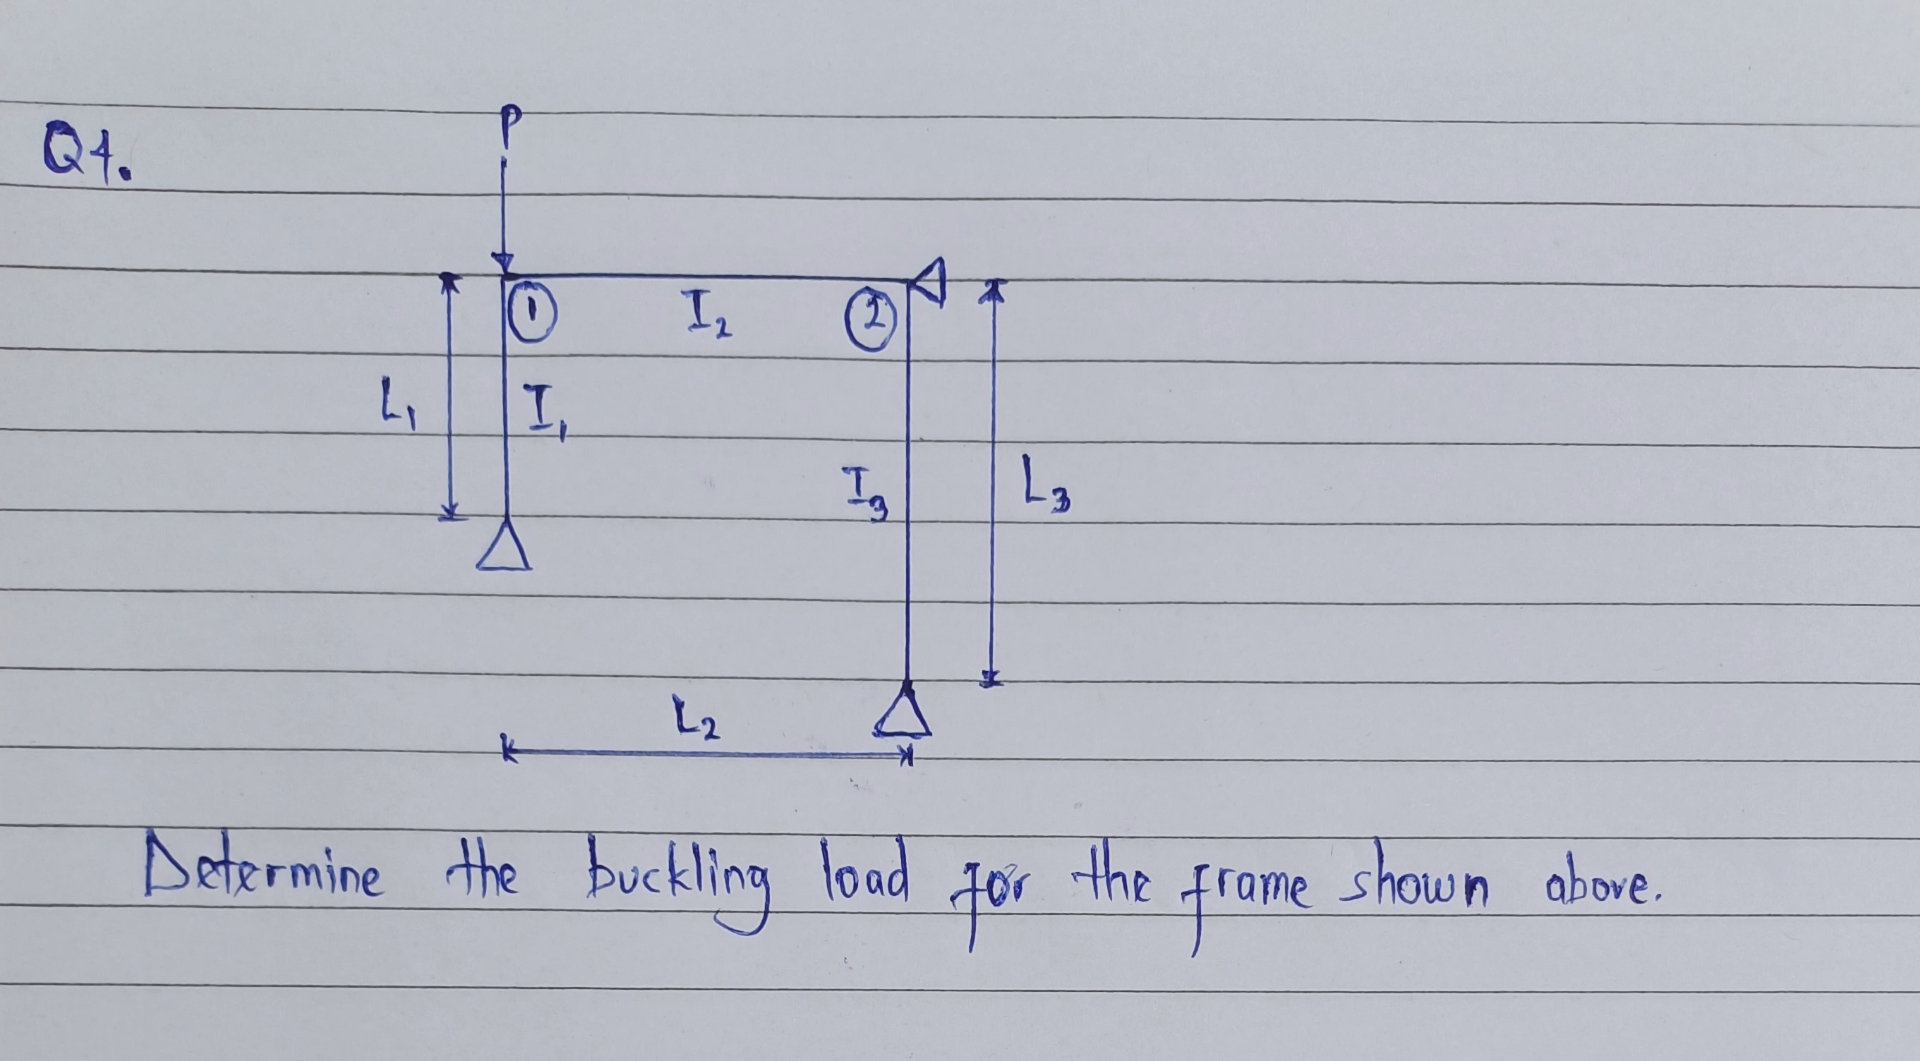 Q4.
P
1
I₂
2
L₁
I₁
I₃
L₃
L₂
Determine the buckling load for the frame shown above.